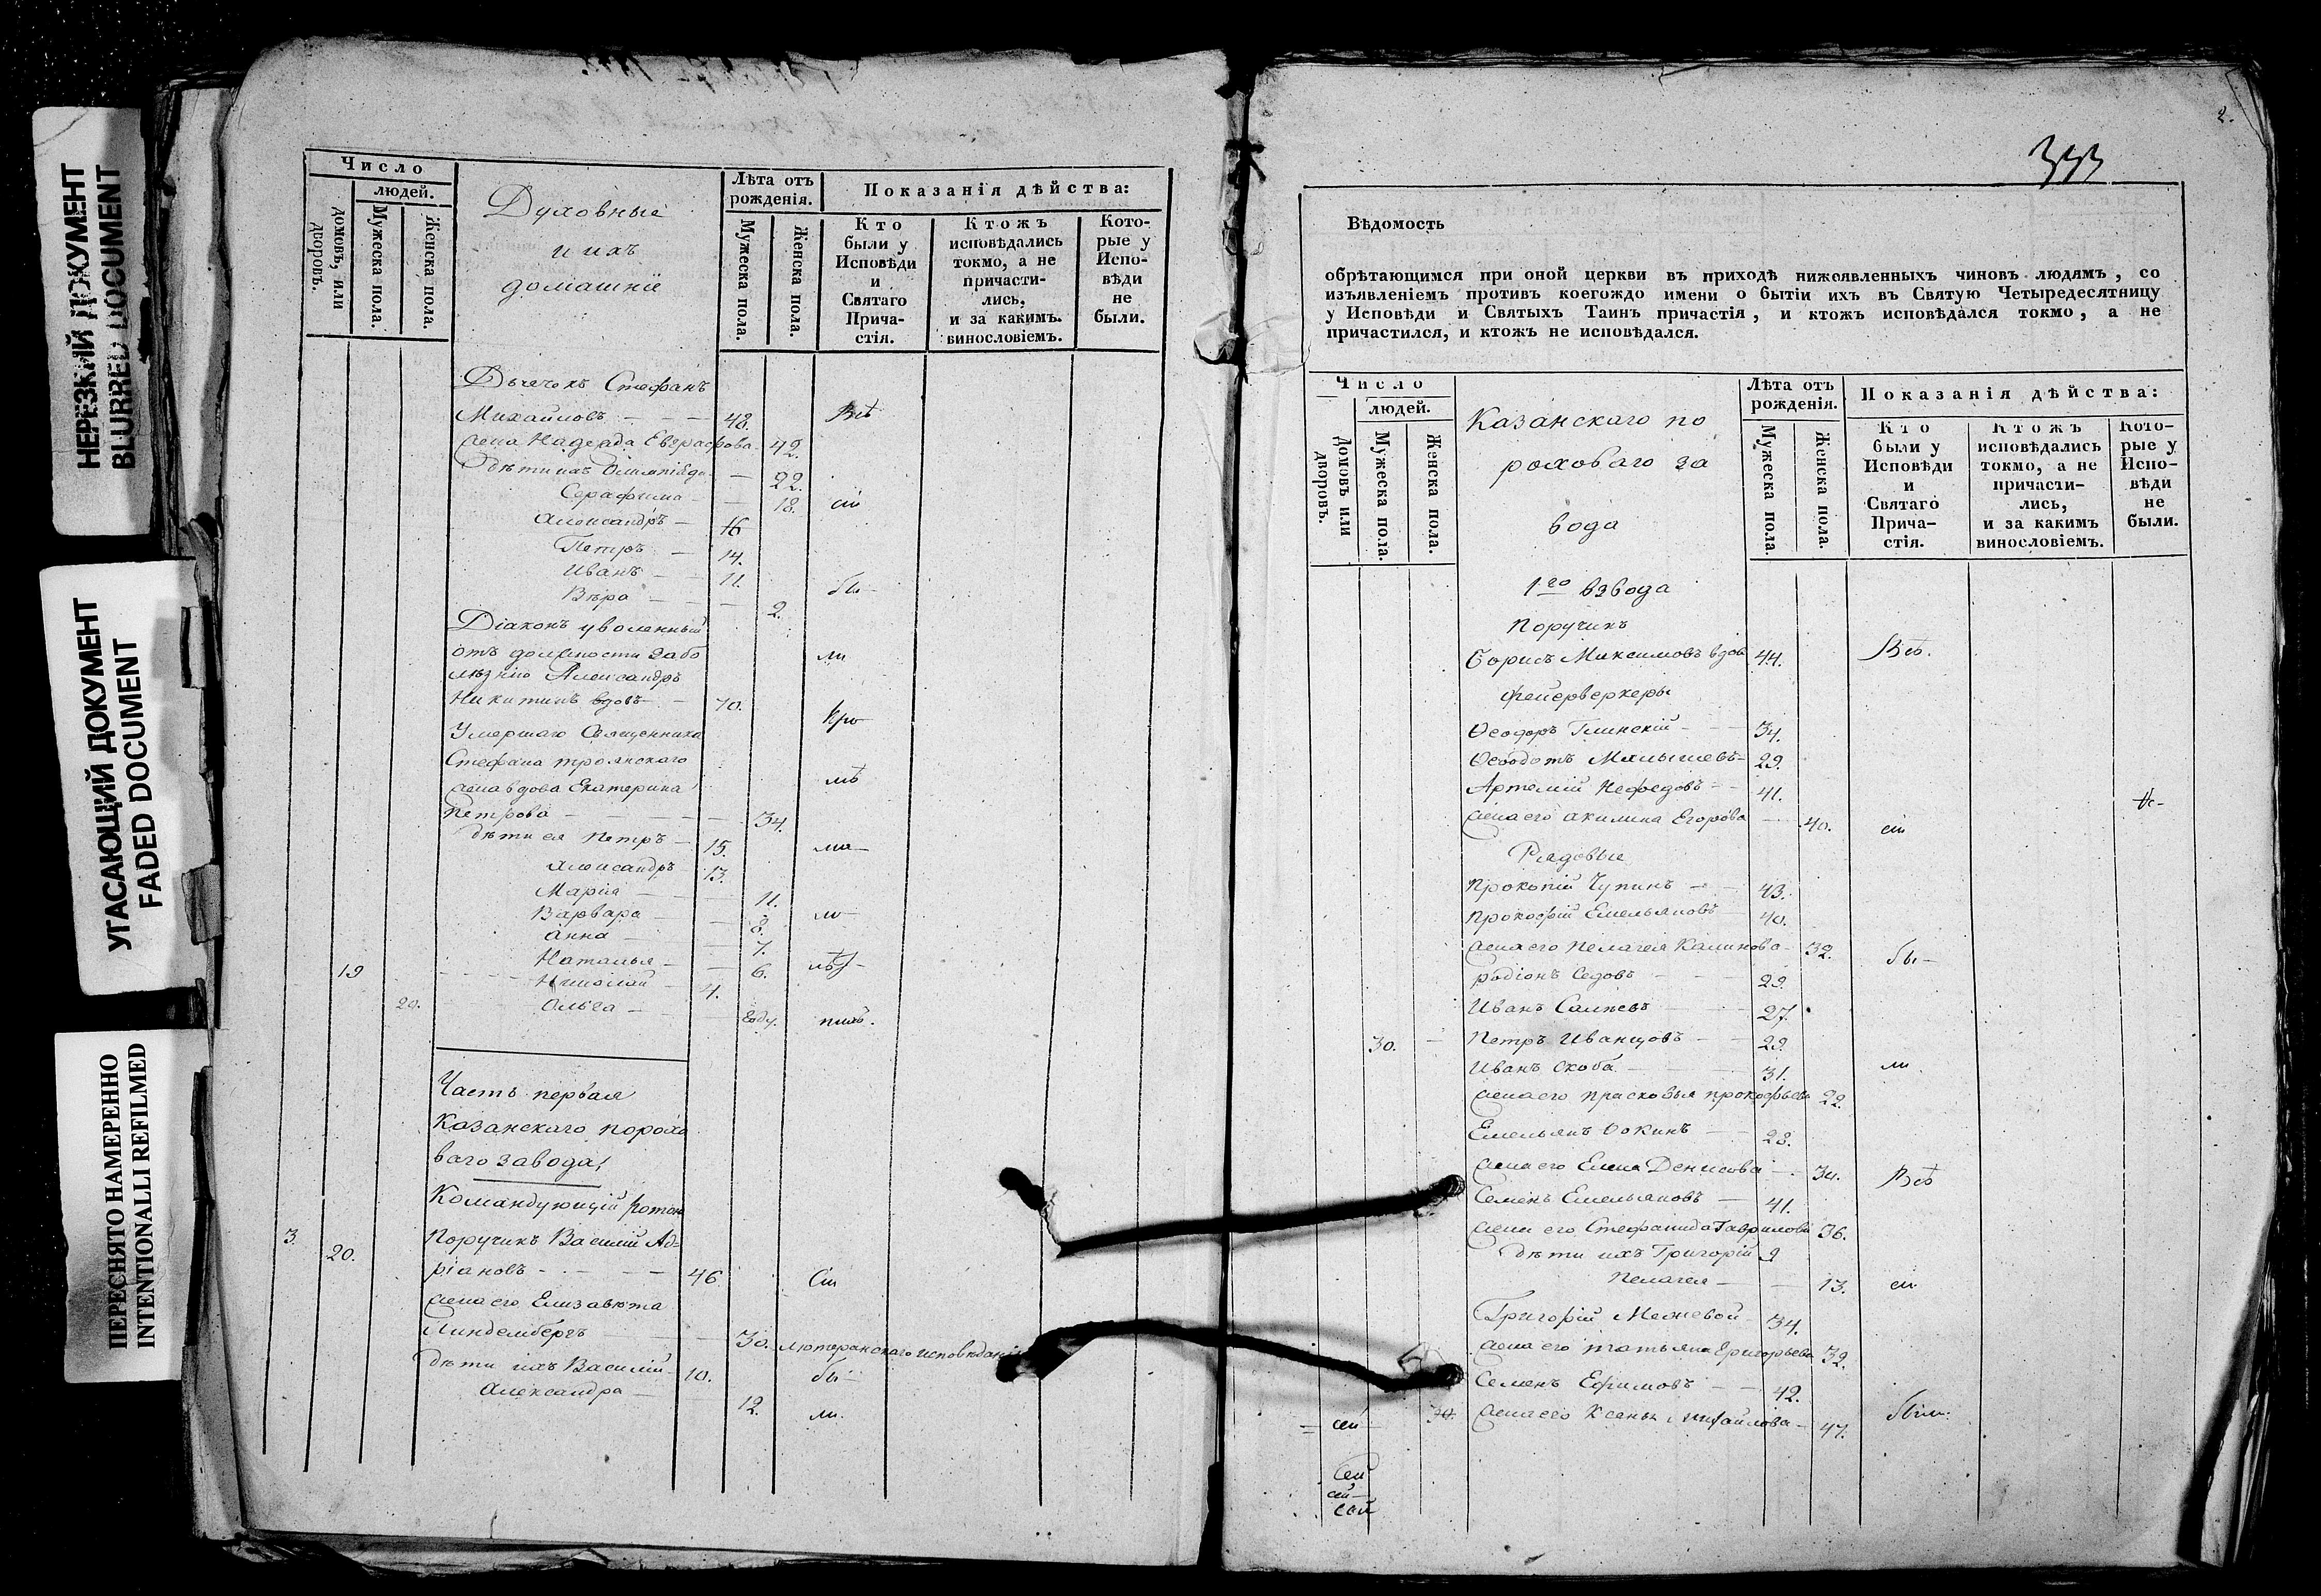 НЕРЕЗКИЙ ДОКУМЕНТ
BLURRED DOCUMENT
УГАСАЮЩИЙ ДОКУМЕНТ
FADED DOCUMENT
ПЕРЕСНЯТО НАМЕРЕННО
INTENTIONALLI REFILMED
Число
людей.
домовъ, или дворовъ.
Мужеска пола.
Женска пола.
Духовные
и ихъ
домашніе
Лѣта отъ рожденія.
Мужеска пола.
Женска пола.
Показанія дѣйства:
Кто были у Исповѣди и Святаго Прича-стія.
Ктожъ исповѣдались токмо, а не причасти-лись, и за какимъ. винословіемъ.
Кото-рые у Испо-вѣди не были.
Дьячекъ Стефанъ
Михайловъ - - - 48. Всѣ
жена Надежда Евграфова 42.
дѣти ихъ Олимпіада - 22.
Серафима - - 18. сіи
Александръ - 16
Петръ - 14.
Иванъ - - 11.
Вѣра - - - 2. бы-
Діаконъ уволенный
отъ должности забо ли
лѣзнію Александръ
Никитинъ вдовъ - 70. Кро
Умершаго Священника
Стефана Троянскаго
жена вдова Екатерина мѣ
Петрова - - - - 34.
дѣти ея Петръ - 15. ма-
Александръ 13.
Марія - - 11.
Варвара - - 8. ло-
Анна - - 7.
19 Наталья - - 6. лѣт-
Николай - 4.
20. Ольга - - году. нихъ.
Часть первая
Казанскаго порохо
ваго завода
Командующій ротою
3. 20. Поручикъ Василій Ад=
ріановъ - - - - 46 Сіи
жена его Елизавета
Линдембергъ - - 30. лютеранскаго исповѣданія
дѣти ихъ Василій 10. бы-
Александра - 12. ли.
2.
333
Вѣдомость
обрѣтающимся при оной церкви въ приходѣ нижеявленныхъ чиновъ людямъ, со
изъявленіемъ противъ коегождо имени о бытіи ихъ въ Святую Четыредесятницу
у Исповѣди и Святыхъ Таинъ причастія, и ктожъ исповѣдался токмо, а не
причастился, и ктожъ не исповѣдался.
Число
людей.
Домовъ или дворовъ.
Мужеска пола.
Женска пола.
Казанскаго по
роховаго за
вода
Лѣта отъ рожденія.
Мужеска пола.
Женска пола.
Показанія дѣйства:
Кто были у Исповѣди и Святаго Прича-стія.
Ктожъ исповѣдались токмо, а не причасти-лись, и за какимъ винословіемъ.
Кото-рые у Испо-вѣди не были.
1го взвода
Поручикъ
Борисъ Максимовъ вдов 44. Всѣ.
Фейерверкеры
Ѳеодоръ Глинскій - - 34.
Ѳеодотъ Малышевъ - 29.
Артемій Нефедовъ - - 41.
жена его Акилина Егорова - 40. сіи
Рядовые
Прокопій Чупинъ - - 43.
Прокофій Емельяновъ 40.
жена его Пелагея Калинова 32. бы-
Родіонъ Седовъ - - - 29.
Иванъ - - 27.
30. - Петръ Иванцовъ - - 29.
Иванъ Скоба - - 31. ли.
жена его Прасковья Прокофьева 22.
Емельянъ - - 28.
жена его Елена Денисова - 34. Всѣ
Семенъ Емельяновъ - 41.
жена его Стефанида Гаврилова 36.
дѣти ихъ Григорій 9
Пелагея - - 13. сіи
Григорій Межевой 34.
жена его Татьяна Григорьева 32.
Семенъ Ефимовъ - - 42.
30. жена его Ксенья Михайлова - 47. были.